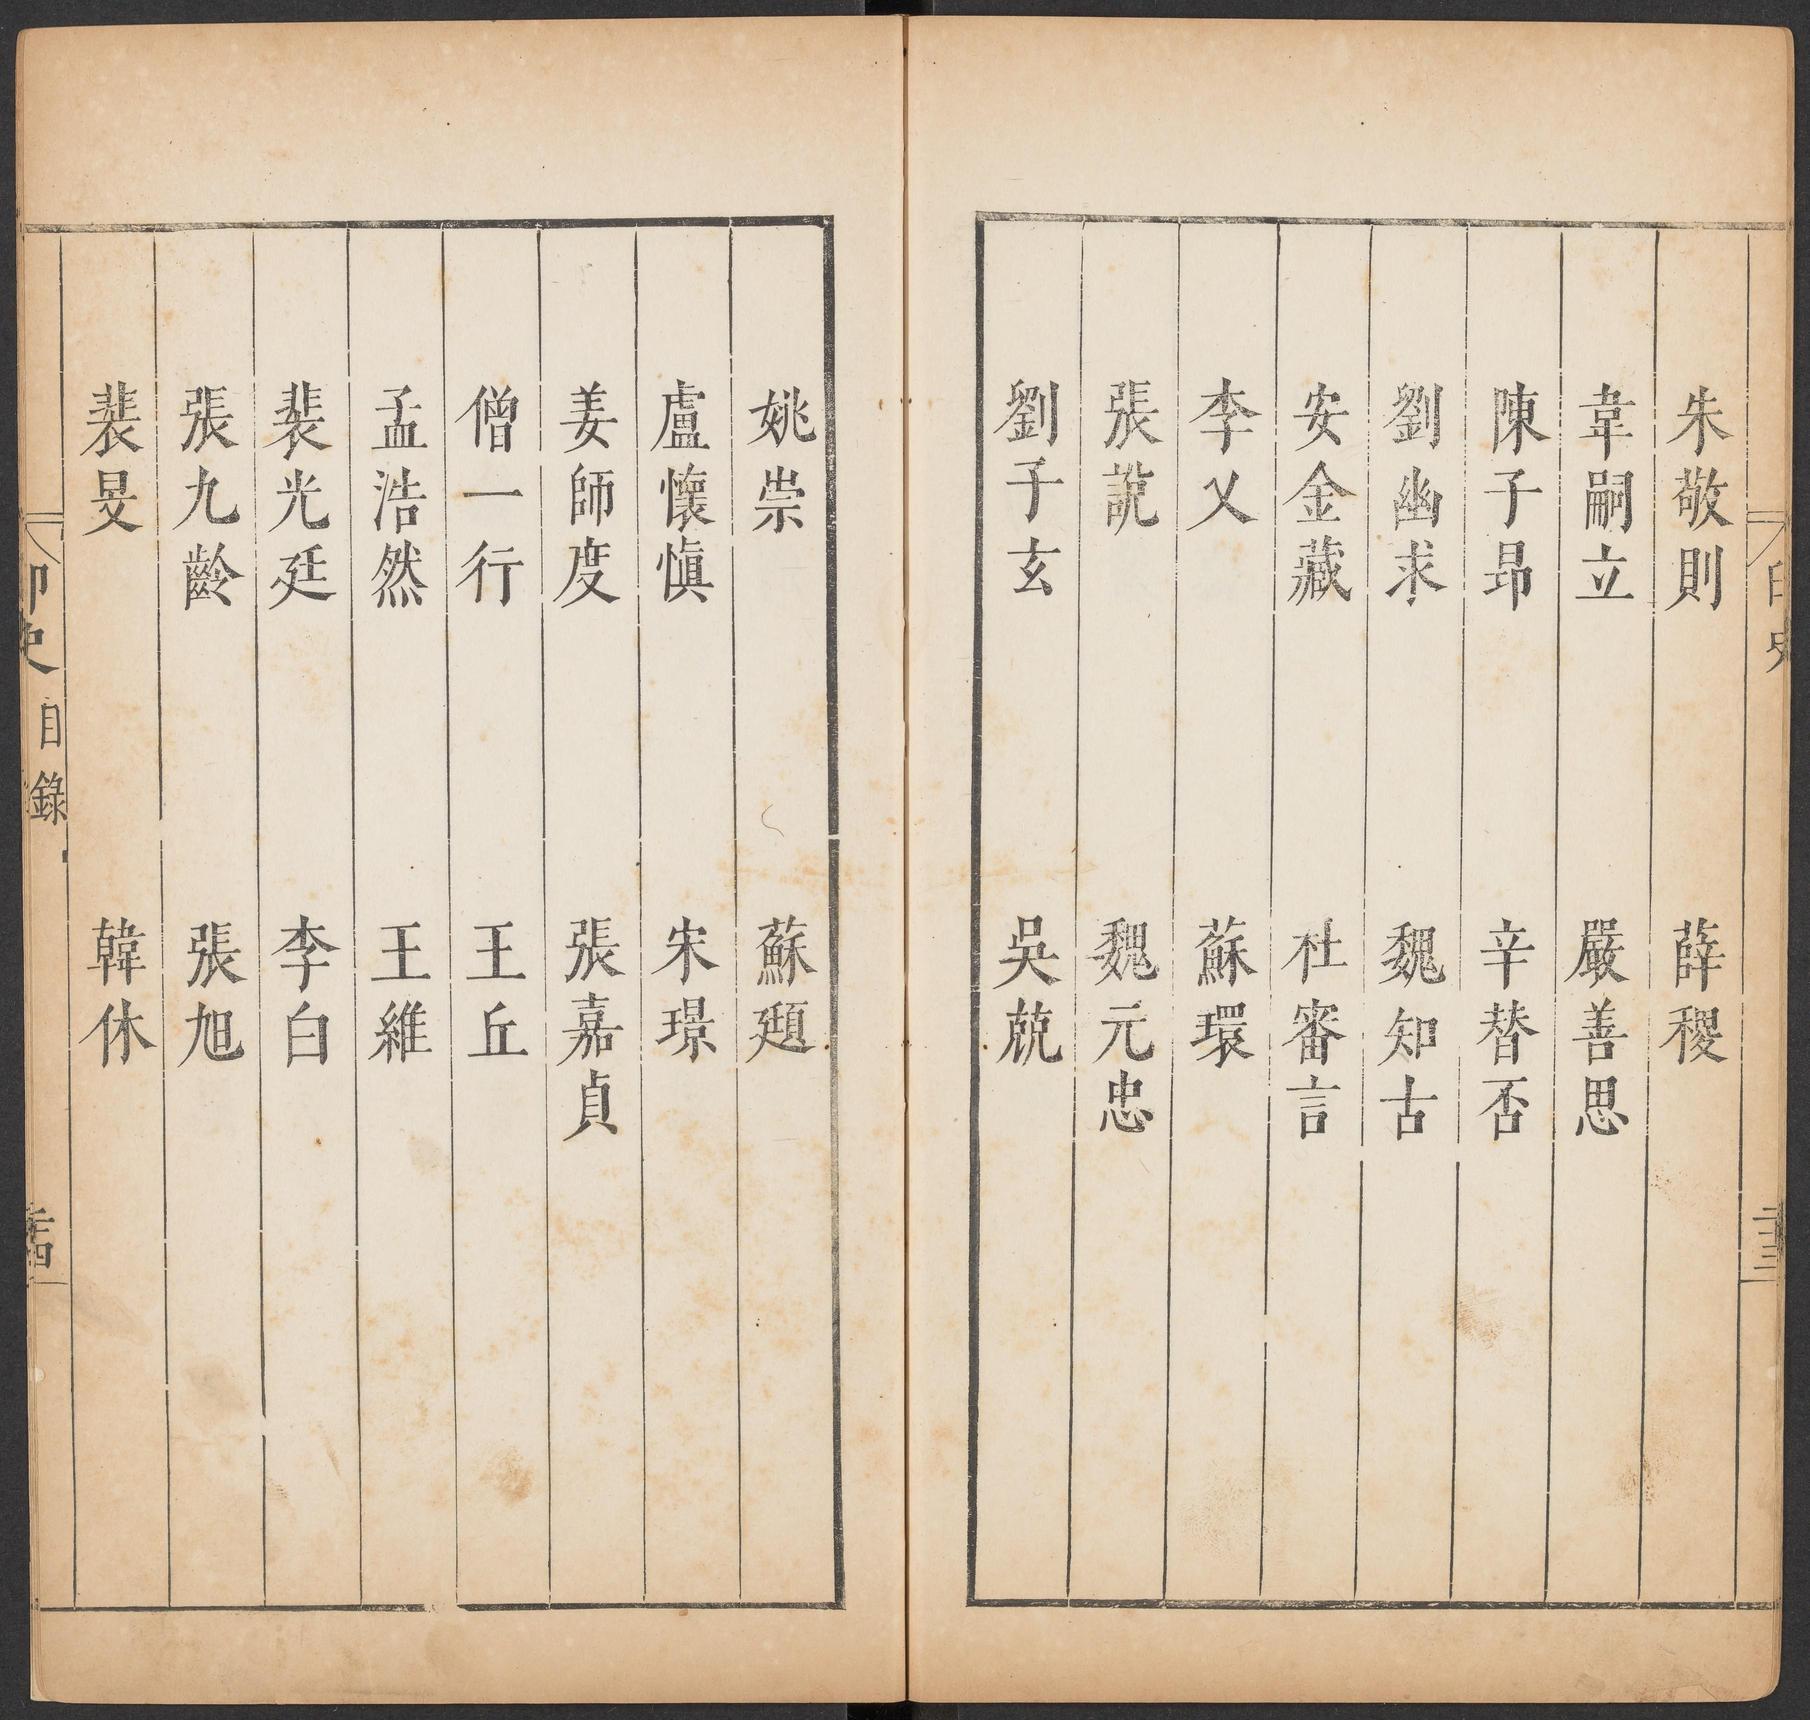 朱敬則 薛稷
韋嗣立 嚴善思
陳子昻 辛替否
劉幽求 魏知古
安金藏 杜審言
李乂 蘇環
張說 魏元忠
劉子玄 吳兢
姚崇 蘇頲
盧懷愼 宋璟
姜師度 張嘉貞
僧一行 王丘
孟浩然 王維
裴光廷 李白
張九齡 張旭
裴旻 韓休
印史 目錄 二十四